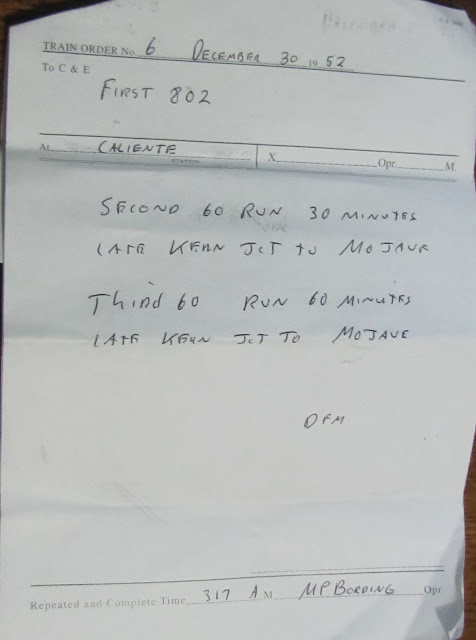 TRAIN ORDER No. 6 DECEMBER 30 19 52
To C & E
FIRST 802
At CALIENTE X Opr. M.
STATION
SECOND 60 RUN 30 MINUTES
LATE KERN JCT TO MOJAVE
Third 60 RUN 60 MINUTES
LATE KERN JCT TO MOJAVE
DFM
Repeated and Complete Time 317 A M. MP BORDING Opr.